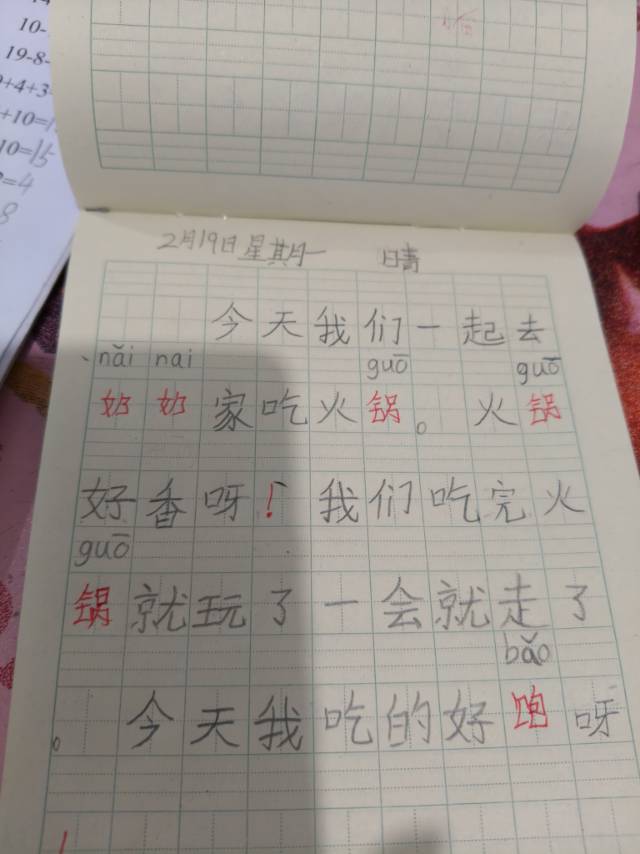 10-
19-8-
9+4+3-
+10=1
10=15
=4
8
2月19日星期一 晴
今天我们一起去
nǎi nai guō guō
奶奶家吃火锅。火锅
好香呀！我们吃完火
guō
锅就玩了一会就走了
bǎo
。今天我吃的好饱呀
！